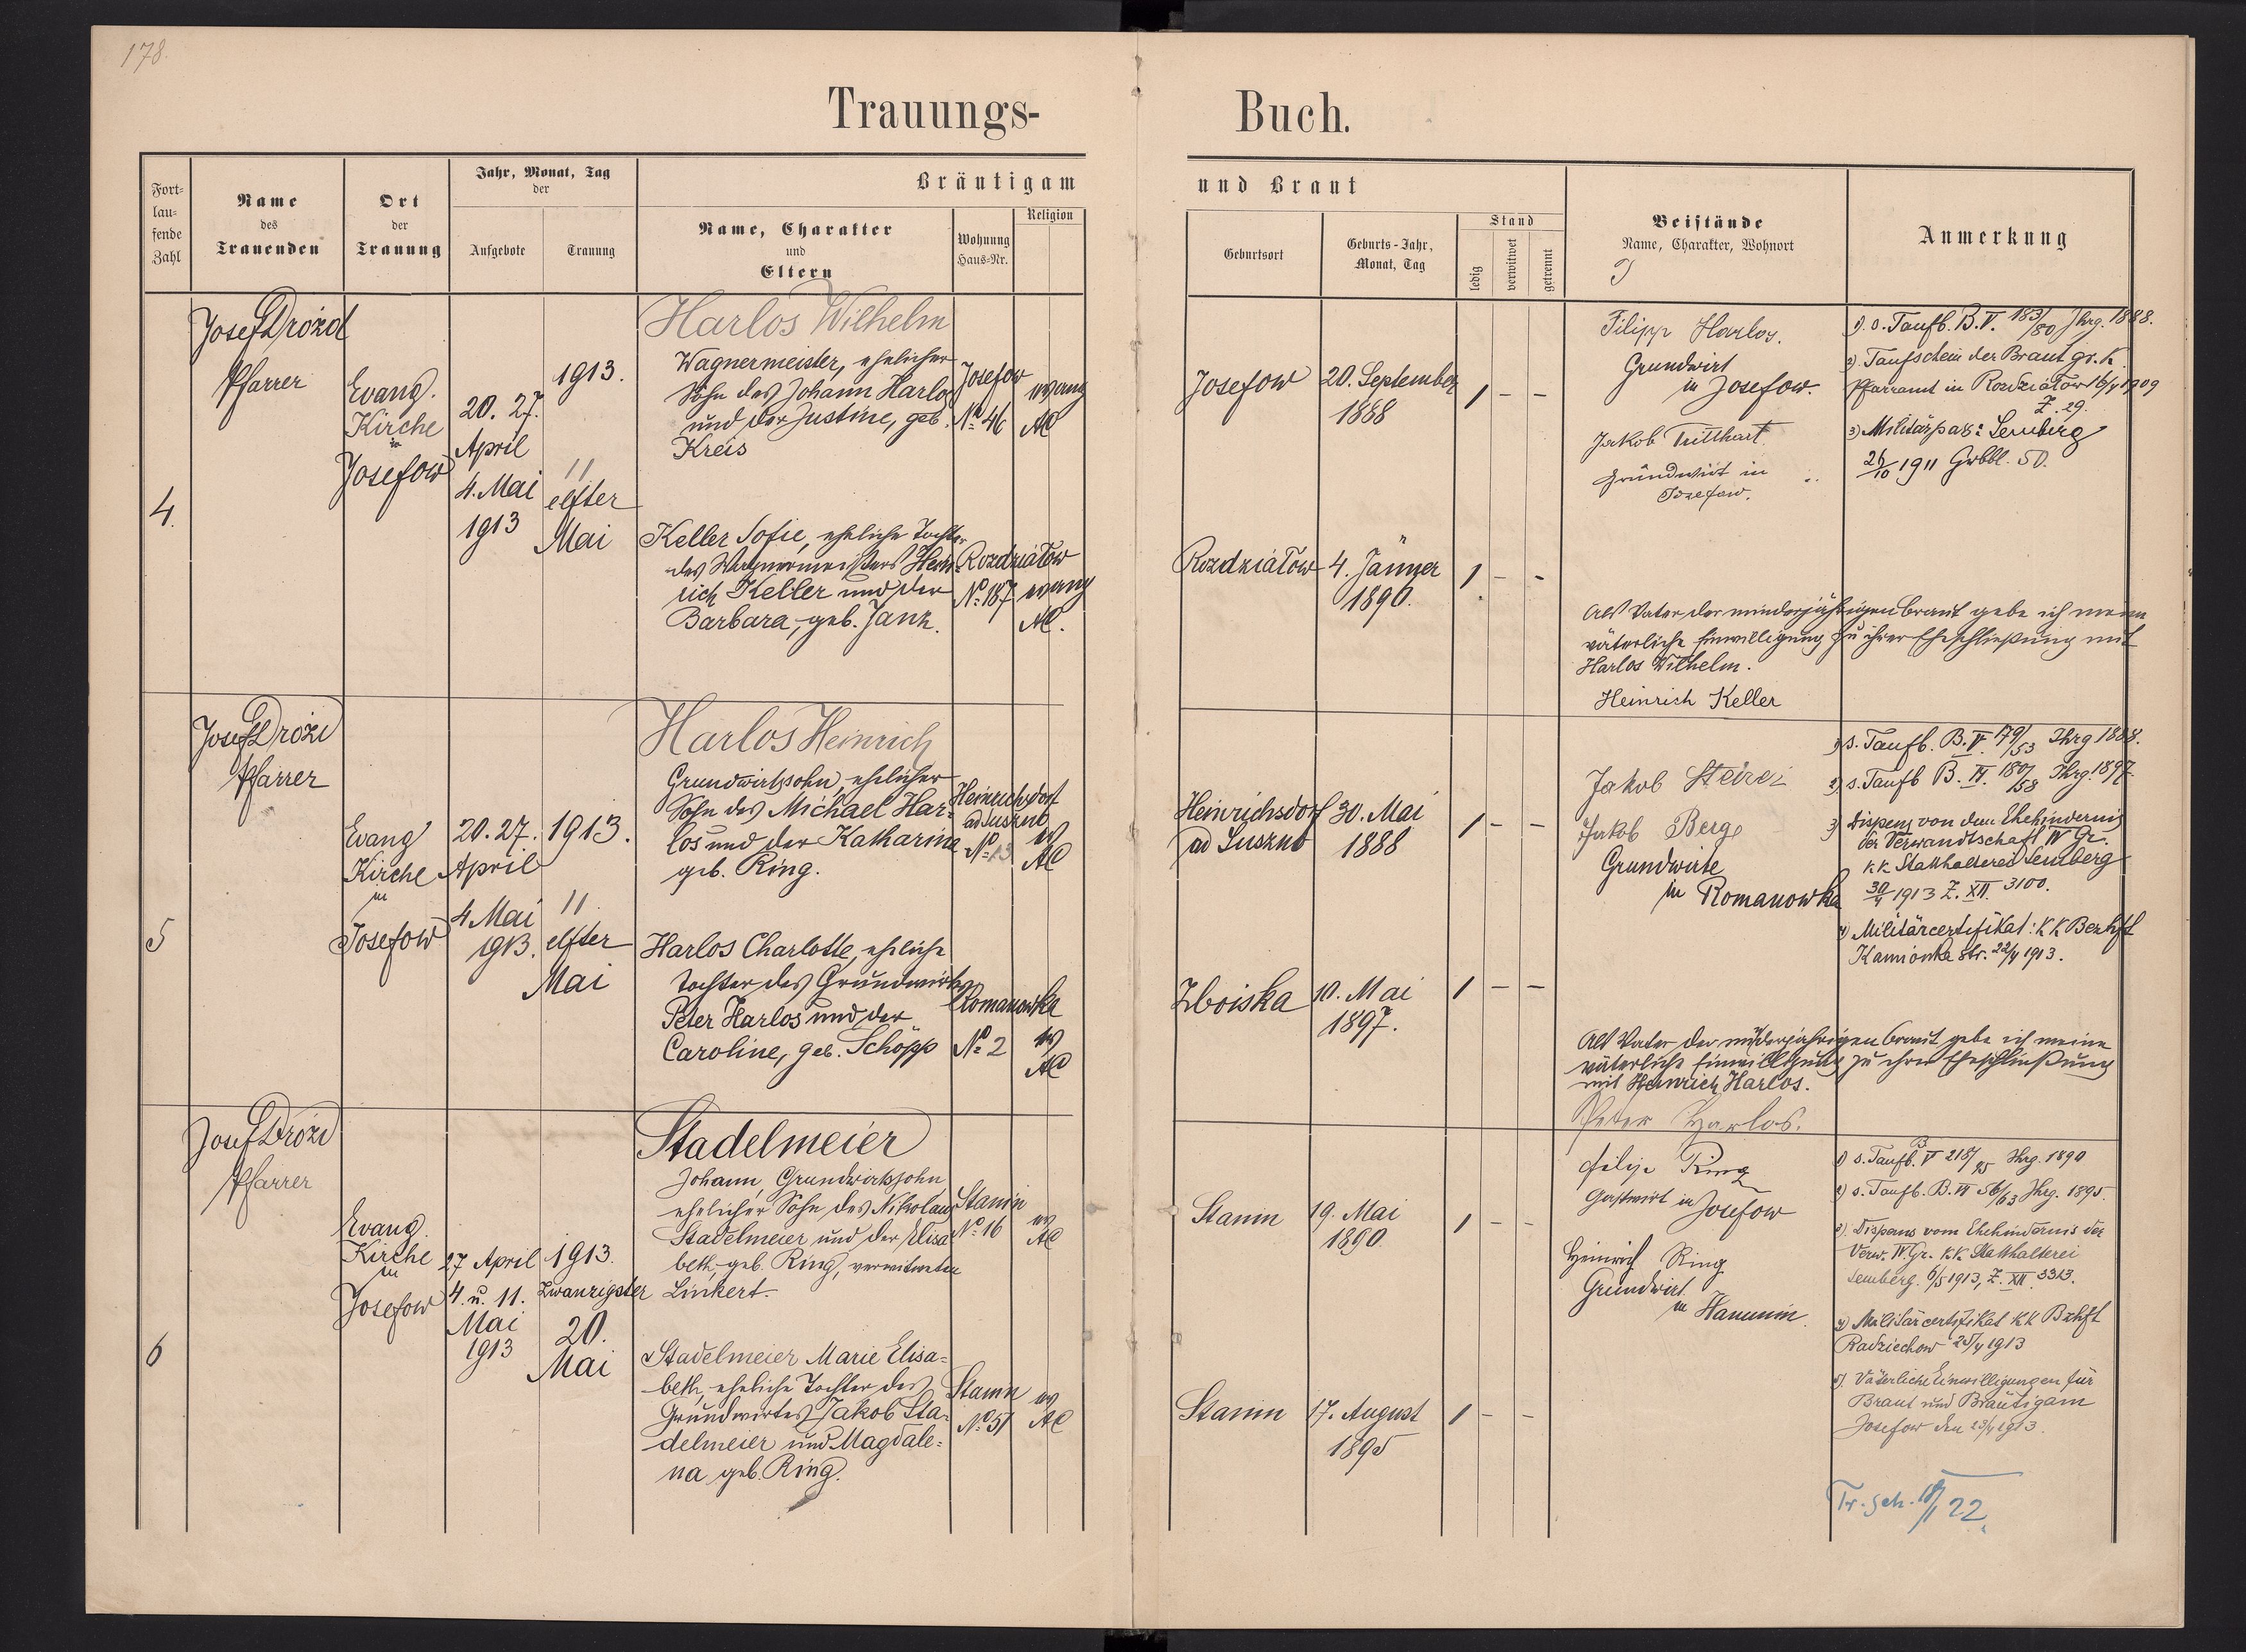 178.
Trauungs-
Buch.
Fort-
lau-
fende
Zahl
Name
des
Trauenden
Ort
der
Trauung
Jahr, Monat, Tag
der
Aufgebote
Trauung
Bräutigam
Name, Charakter
und
Eltern
Wohnung
Haus-Nr.
Religion
und Braut
Geburtsort
Geburts-Jahr,
Monat, Tag
Stand
ledig
verwitwet
getrennt
Beistände
Name, Charakter, Wohnort
Anmerkung
4.
Josef Drozd
Pfarrer
Evang.
Kirche
in
Josefow
20. 27.
April
4. Mai
1913
1913.
11
elfter
Mai
Harlos Wilhelm
Wagnermeister, ehelicher
Sohn des Johann Harlos
und der Justine, geb.
Kreis
Josefow
No 46
evang
AC
Keller Sofie, eheliche Tochter
des Wagnermeisters Hein-
rich Keller und der
Barbara, geb. Jank.
Rozdziałow
No 187
evang
AC.
Josefow
20. September
1888
1 - -
Rozdziałow
4. Jänner
1890.
1 - -
Filipp Harlos.
Grundwirt
in Josefow.
Jakob Tritthart.
Grundwirt in
Josefow.
1) s. Taufb. B. V. 183/80 Jhrg. 1888.
2) Taufschein der Braut gr. k.
Pfarramt in Rozdziałow 16/4 1909
Z. 29.
3) Militärpass: Lemberg
26/10 1911 Grbbl. 50.
Als Vater der minderjährigen Braut gebe ich meine
väterliche Einwilligung zu ihrer Eheschließung mit
Harlos Wilhelm.
Heinrich Keller
5
Josef Drozd
Pfarrer
Evang
Kirche
in
Josefow
20. 27.
April
4 Mai
1913.
1913.
11.
elfter
Mai
Harlos Heinrich
Grundwirtssohn, ehelicher
Sohn des Michael Har-
los und der Katharina
geb. Ring.
Heinrichsdorf
ad Suszno
No 13
ev
AC
Harlos Charlotte, eheliche
Tochter des Grundwirtes
Peter Harlos und der
Caroline, geb. Schöpp
Romanowka
No 2
ev
AC
Heinrichsdorf
ad Suszno
30. Mai
1888
1 - -
Zboiska
10. Mai
1897.
1 - -
Jakob
Jakob Berg
Grundwirte
in Romanowka
1) s. Taufb. B. V. 179/53 Jhrg 1888.
2) s. Taufb B. VI. 180/58 Jhrg. 1897.
3) Dispens von dem Ehehindernis
der Verwandtschaft IV Gr.
k.k. Statthalterei Lemberg
30/4 1913 Z. XII. 3100.
4) Militärcertifikat: k k Bezhft
Kamionka str. 22/4 1913.
Als Vater der minderjährigen Braut gebe ich meine
väterliche Einwilligung zu ihrer Eheschließung
mit Heinrich Harlos.
Peter Harlos.
6
Josef Drozd
Pfarrer
Evang.
Kirche
in
Josefow
27 April
4. u. 11.
Mai
1913
1913.
Zwanzigster
20.
Mai
Stadelmeier
Johann, Grundwirtssohn
ehelicher Sohn des Nikolaus
Stadelmeier und der Elisa
beth, geb. Ring, verwitweten
Linkert.
Stanin
No 16
ev
AC
Stadelmeier Marie Elisa-
beth, eheliche Tochter des
Grundwirtes Jakob Sta-
delmeier und Magdale-
na geb. Ring.
Stanin
No 51
ev
AC
Stanin
19. Mai
1890.
1 - -
Stanin
17. August
1895
1 - -
Ring
Gastwirt in
Josefow
Heinrich Ring
Grundwirt
in Hanunin.
1) s. Taufb. B. V 218/95 Jhrg. 1890
2) s. Taufb. B. VI 56/63 Jhrg. 1895.
3) Dispens vom Ehehindernis der
Verw. IV Gr. k.k. Statthalterei
Lemberg. 6/5 1913, Z. XII 3313.
4) Militärcertifikat k k Bzhft
Radziechow 25/4 1913
5) Väterliche Einwilligungen für
Braut und Bräutigam
Josefow den 23/4 1913.
Tr. Sch. 22.